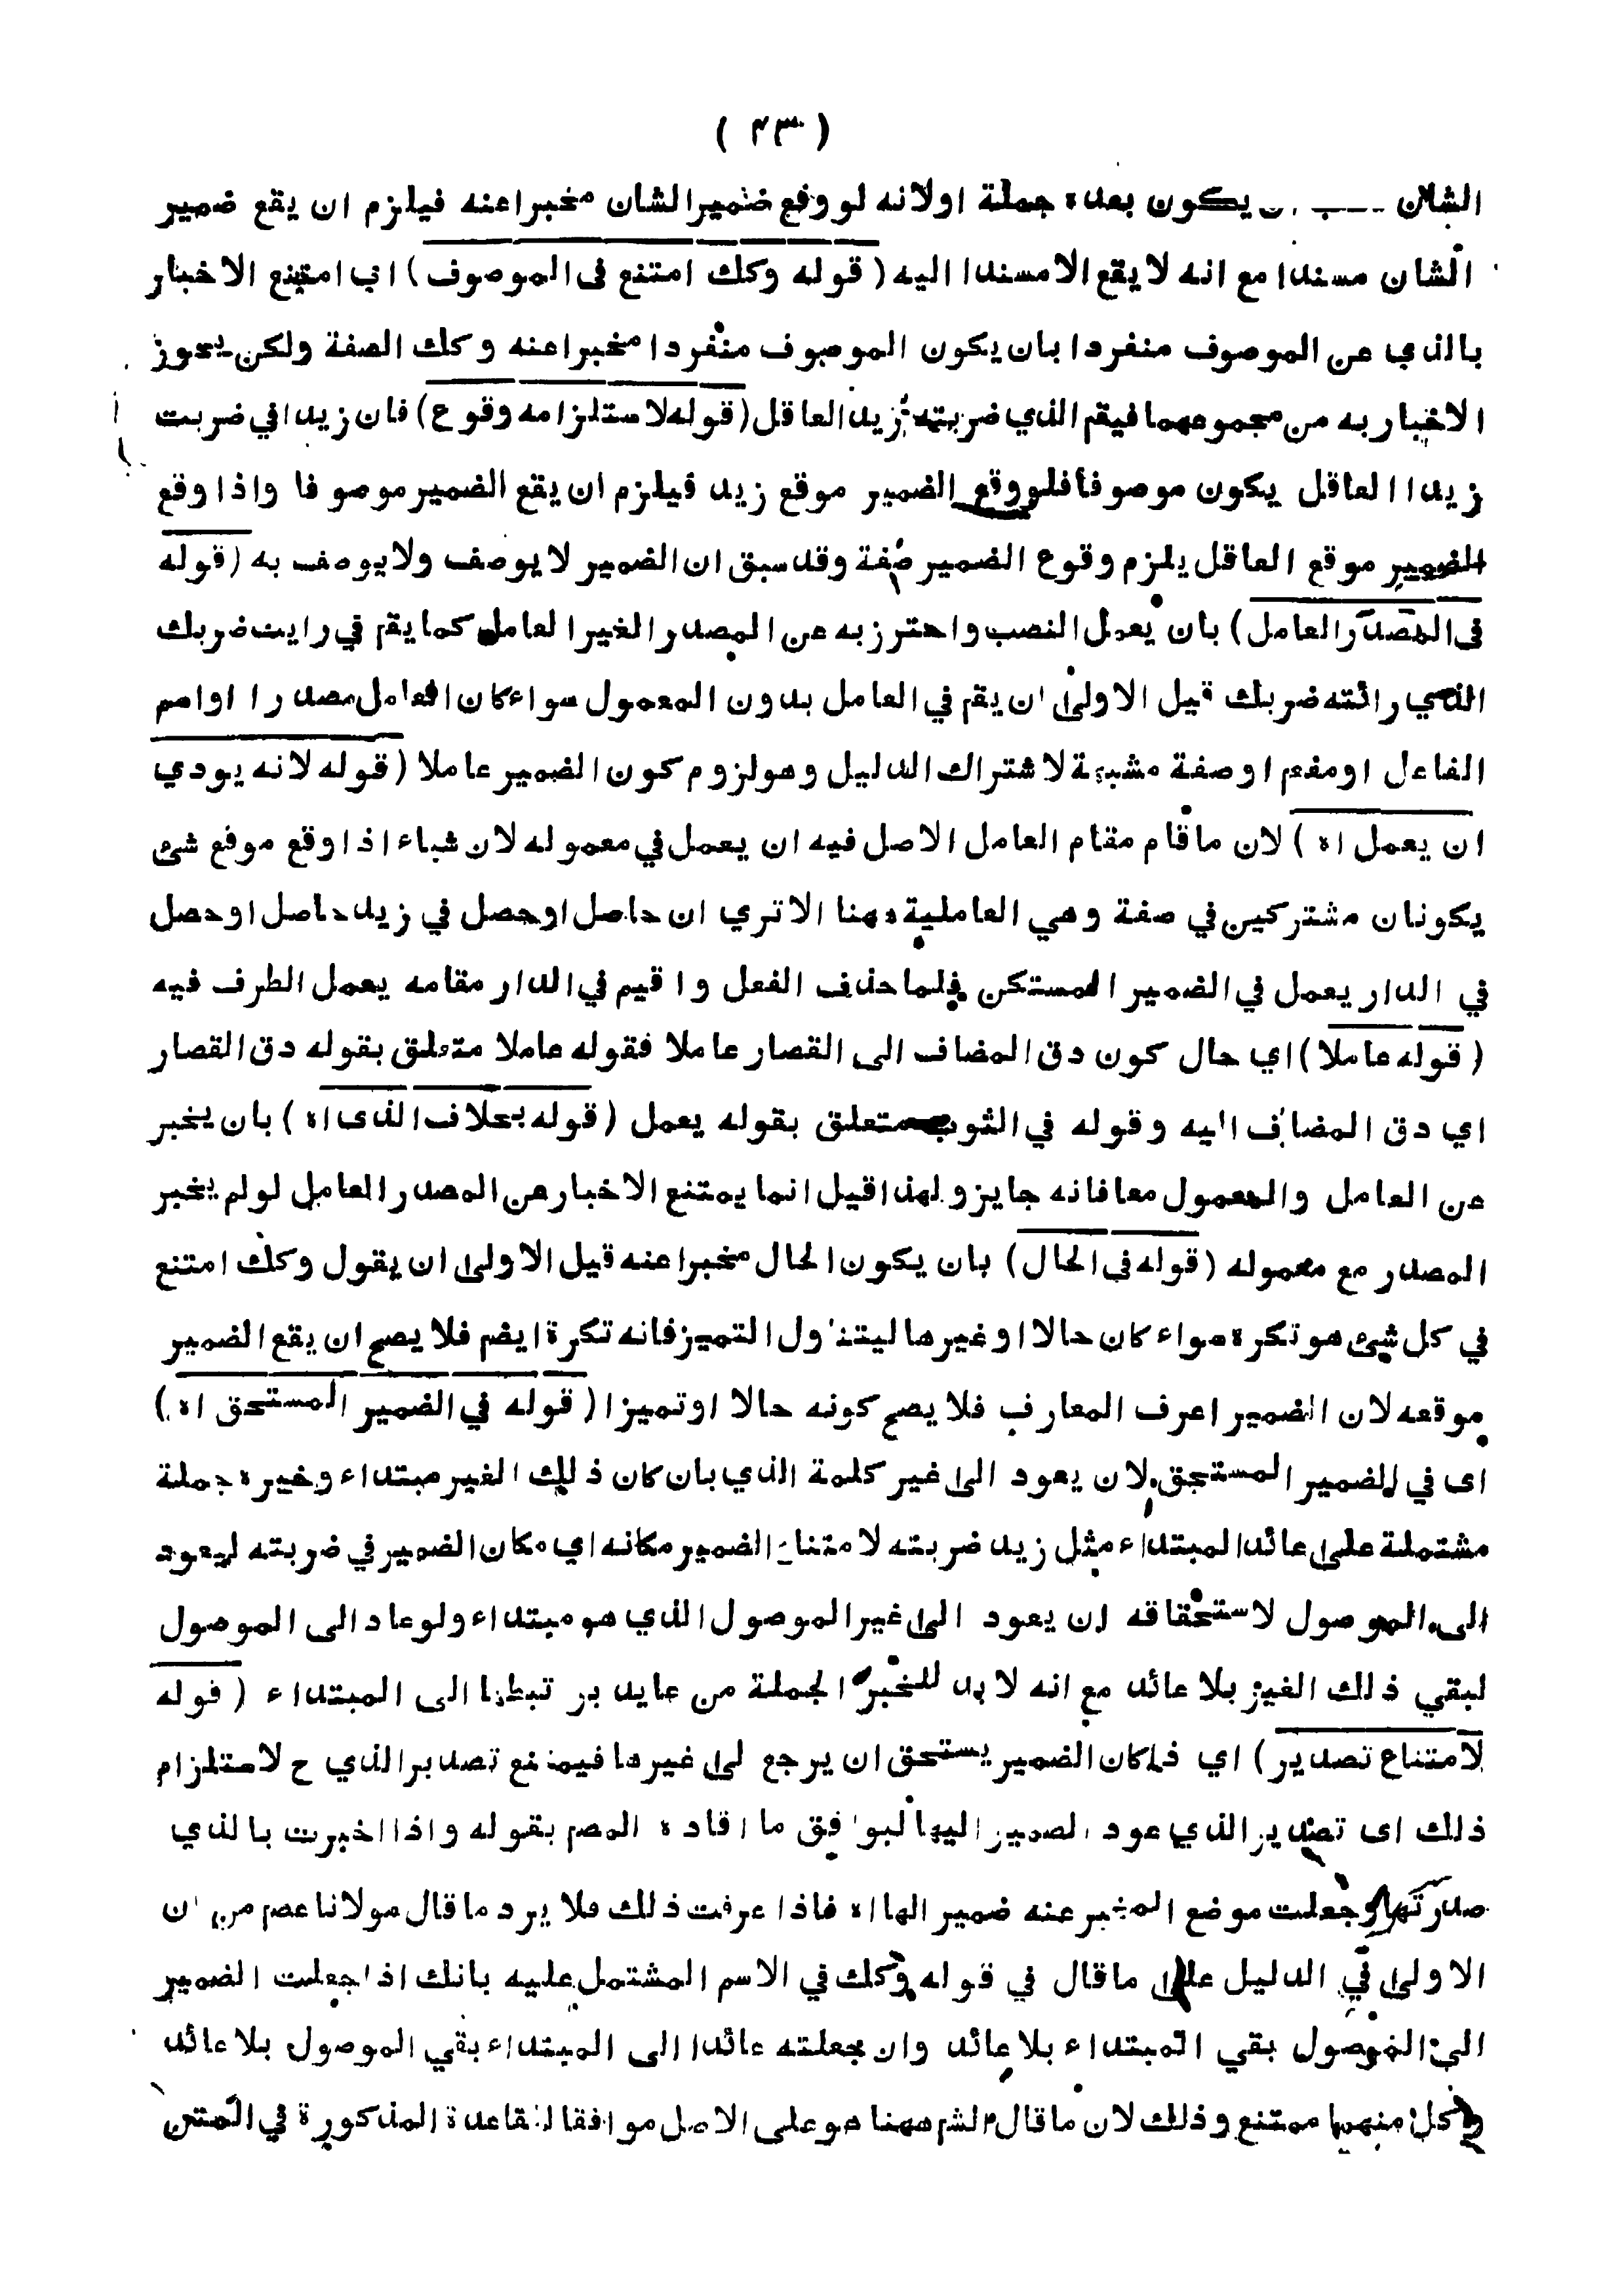 ( ۴۳ )
الشان يكون بعده جملة اولانه لو وقع ضميرالشان مخبراعنه فيلزم ان يقع ضمير
الشان مسندا مع انه لا يقع الا مسندا اليه ( قوله وكك امتنع فى الموصوف ) اى امتنع الاخبار
بالذي عن الموصوف منفردا بان يكون الموصوف منفردا مخبراعنه وكك الصفة ولكن يجوز
الاخبار به من مجموعهما فيقم الذي ضربته زيد العاقل ( قوله لاستلزامه وقوع ) فان زيدا في ضربت
زيدا العاقل يكون موصوفا فلو وقع الضمير موقع زيد فيلزم ان يقع الضمير موصوفا واذا وقع
الضمير موقع العاقل يلزم وقوع الضمير صفة وقد سبق ان الضمير لا يوصف ولا يوصف به ( قوله
فى المصدر العامل ) بان يعمل النصب واحترز به عن المصدر الغير العامل كما يقم في رايت ضربك
الذي رائته ضربك قيل الاولى ان يقم في العامل بدون المعمول سواء كان العامل مصدرا او اسم
الفاعل او مفعم او صفة مشبهة لاشتراك الدليل وهو لزوم كون الضمير عاملا ( قوله لانه يودي
ان يعمل اه ) لان ما قام مقام العامل الاصل فيه ان يعمل في معموله لان شياء اذا وقع موقع شئ
يكونان مشتركين في صفة وهي العاملية ههنا الا تري ان حاصل او حصل في زيد حاصل او حصل
في الدار يعمل في الضمير المستكن فلما حذف الفعل واقيم في الدار مقامه يعمل الطرف فيه
( قوله عاملا ) اي حال كون دق المضاف الى القصار عاملا فقوله عاملا متعلق بقوله دق القصار
اي دق المضاف اليه وقوله في الثوب متعلق بقوله يعمل ( قوله بخلاف الذى اه ) بان يخبر
عن العامل والمعمول معا فانه جايز ولهذا قيل انما يمتنع الاخبار عن المصدر العامل لو لم يخبر
المصدر مع معموله ( قوله فى الحال ) بان يكون الحال مخبرا عنه قيل الاولى ان يقول وكك امتنع
في كل شئ هو نكرة سواء كان حالا او غيرها ليتناول التميز فانه نكرة ايضم فلا يصح ان يقع الضمير
موقعه لان الضمير اعرف المعارف فلا يصح كونه حالا او تميزا ( قوله في الضمير المستحق اه )
اى في الضمير المستحق لان يعود الى غير كلمة الذي بان كان ذلك الغير مبتداء وخبره جملة
مشتملة على عائد المبتداء مثل زيد ضربته لامتناع الضمير مكانه اي مكان الضمير في ضربته ليعود
الى الموصول لاستحقاقه ان يعود الى غير الموصول الذي هو مبتداء ولو عاد الى الموصول
لبقي ذلك الغير بلا عائد مع انه لا بد للخبر الجملة من عايد يربطها الى المبتداء ( قوله
لامتناع تصدير ) اي فلكان الضمير يستحق ان يرجع لى غيرها فيمتنع تصدير الذي ح لاستلزام
ذلك اى تصدير الذي عود الضمير اليها ليوافق ما افاده المصم بقوله واذا اخبرت بالذي
صدرتها وجعلت موضع المخبر عنه ضمير الها اه فاذا عرفت ذلك فلا يرد ما قال مولانا عصم من ان
الاولى في الدليل على ما قال في قوله وكك في الاسم المشتمل عليه بانك اذا جعلت الضمير
الى الموصول بقي المبتداء بلا عائد وان جعلته عائدا الى المبتداء بقي الموصول بلا عائد
وكل منهما ممتنع وذلك لان ما قال الشم ههنا هو على الاصل موافقا للقاعدة المذكورة في المتن